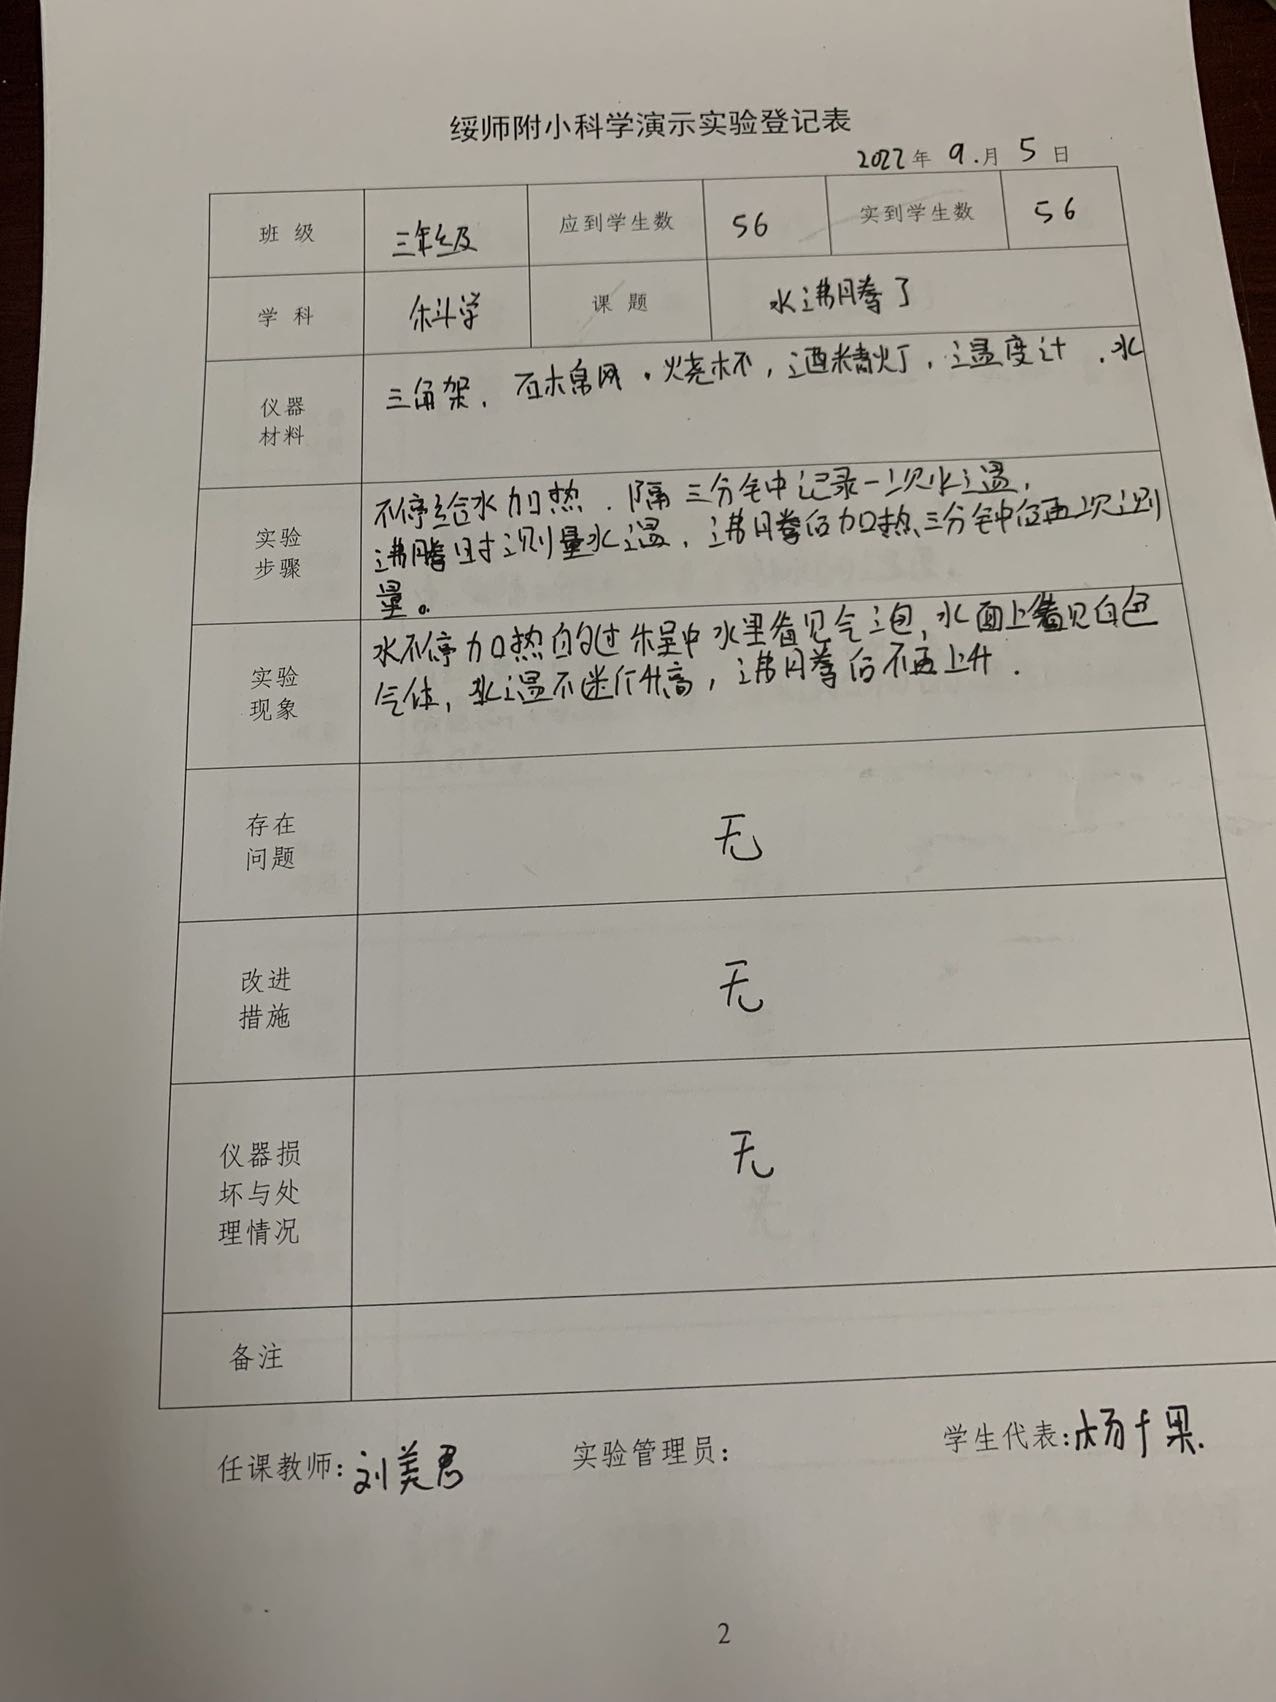 绥师附小科学演示实验登记表
2022年 9.月 5日
班 级 三年级 应到学生数 56 实到学生数 56
学 科 科学 课 题 水沸腾了
仪器
材料
三角架，石棉网，烧杯，酒精灯，温度计，水
实验
步骤
不停给水加热．隔三分钟记录一次水温，
沸腾时测量水温，沸腾后加热三分钟后再次测
量。
实验
现象
水不停加热的过程中水里看见气泡，水面上看见白色
气体，水温不断升高，沸腾后不再上升．
存在
问题
无
改进
措施
无
仪器损
坏与处
理情况
无
备注
任课教师：刘美君 实验管理员： 学生代表：杨千果.
2